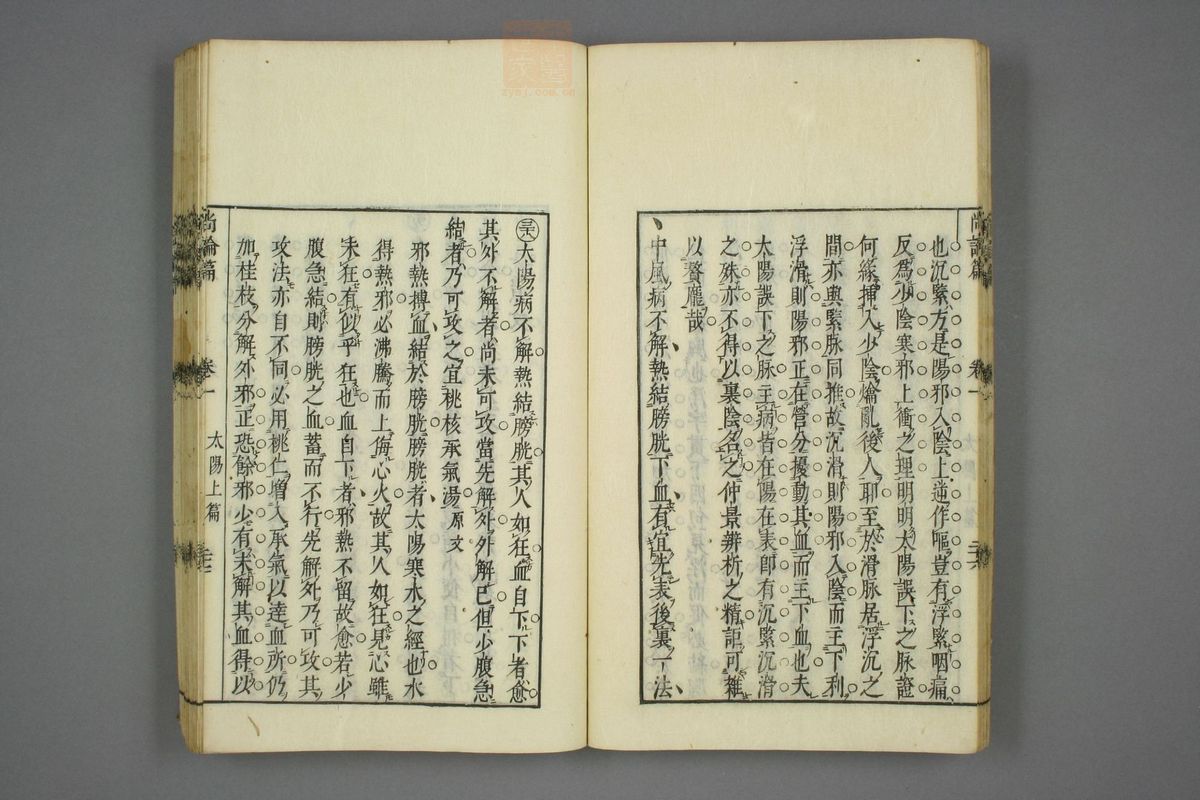 尚論篇
也沉緊方是陽邪入陰上逆作嘔豈有浮緊咽痛
反爲少陰寒邪上衝之理明明太陽誤下之脉證
何緣揷入少陰燴亂後人耶至於滑脉居浮沉之
間亦與緊脉同推故沉滑則陽邪入陰而主下利
浮滑則陽邪正在營分擾動其血而主下血也夫
太陽誤下之脉主病皆在陽在表卽有沉緊沉滑
之殊亦不得以裏陰名之仲景辨析之精詎可雜
以贅龎哉
中風病不解熱結膀胱下血有宜先表後裏一法
太陽病不解熱結膀胱其人如狂血自下下者愈
其外不解者尚未可攻當先解外外解已但少腹急
結者乃可攻之宜桃核承氣湯 原文
邪熱搏血結於膀胱膀胱者太陽寒水之經也水
得熱邪必沸騰而上侮心火故其人如狂見心雖
未狂有似乎狂也血自下者邪熱不留故愈若少
腹急結則膀胱之血蓄而不行先解外乃可攻其
攻法亦自不同必用桃仁增入承氣以達血所仍
加桂枝分解外邪正恐餘邪少有未解其血得以
尚論篇
卷一
太陽上篇
zysj.com.cn